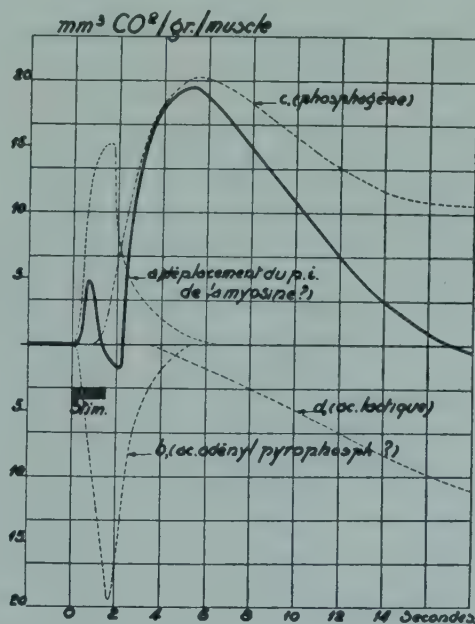 mm³ CO²/gr./muscle
20
c.(phosphagène)
15
10
5
a.déplacement du p.i.
de la myosine?)
Stim.
5
d.(ac. lactique)
10
b.(ac. adényl pyrophosph ?)
15
20
0 2 4 6 8 10 12 14 Secondes